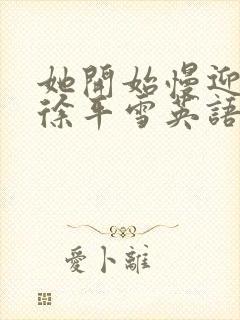 她開始慢迎
徐平雪英語
愛卜離